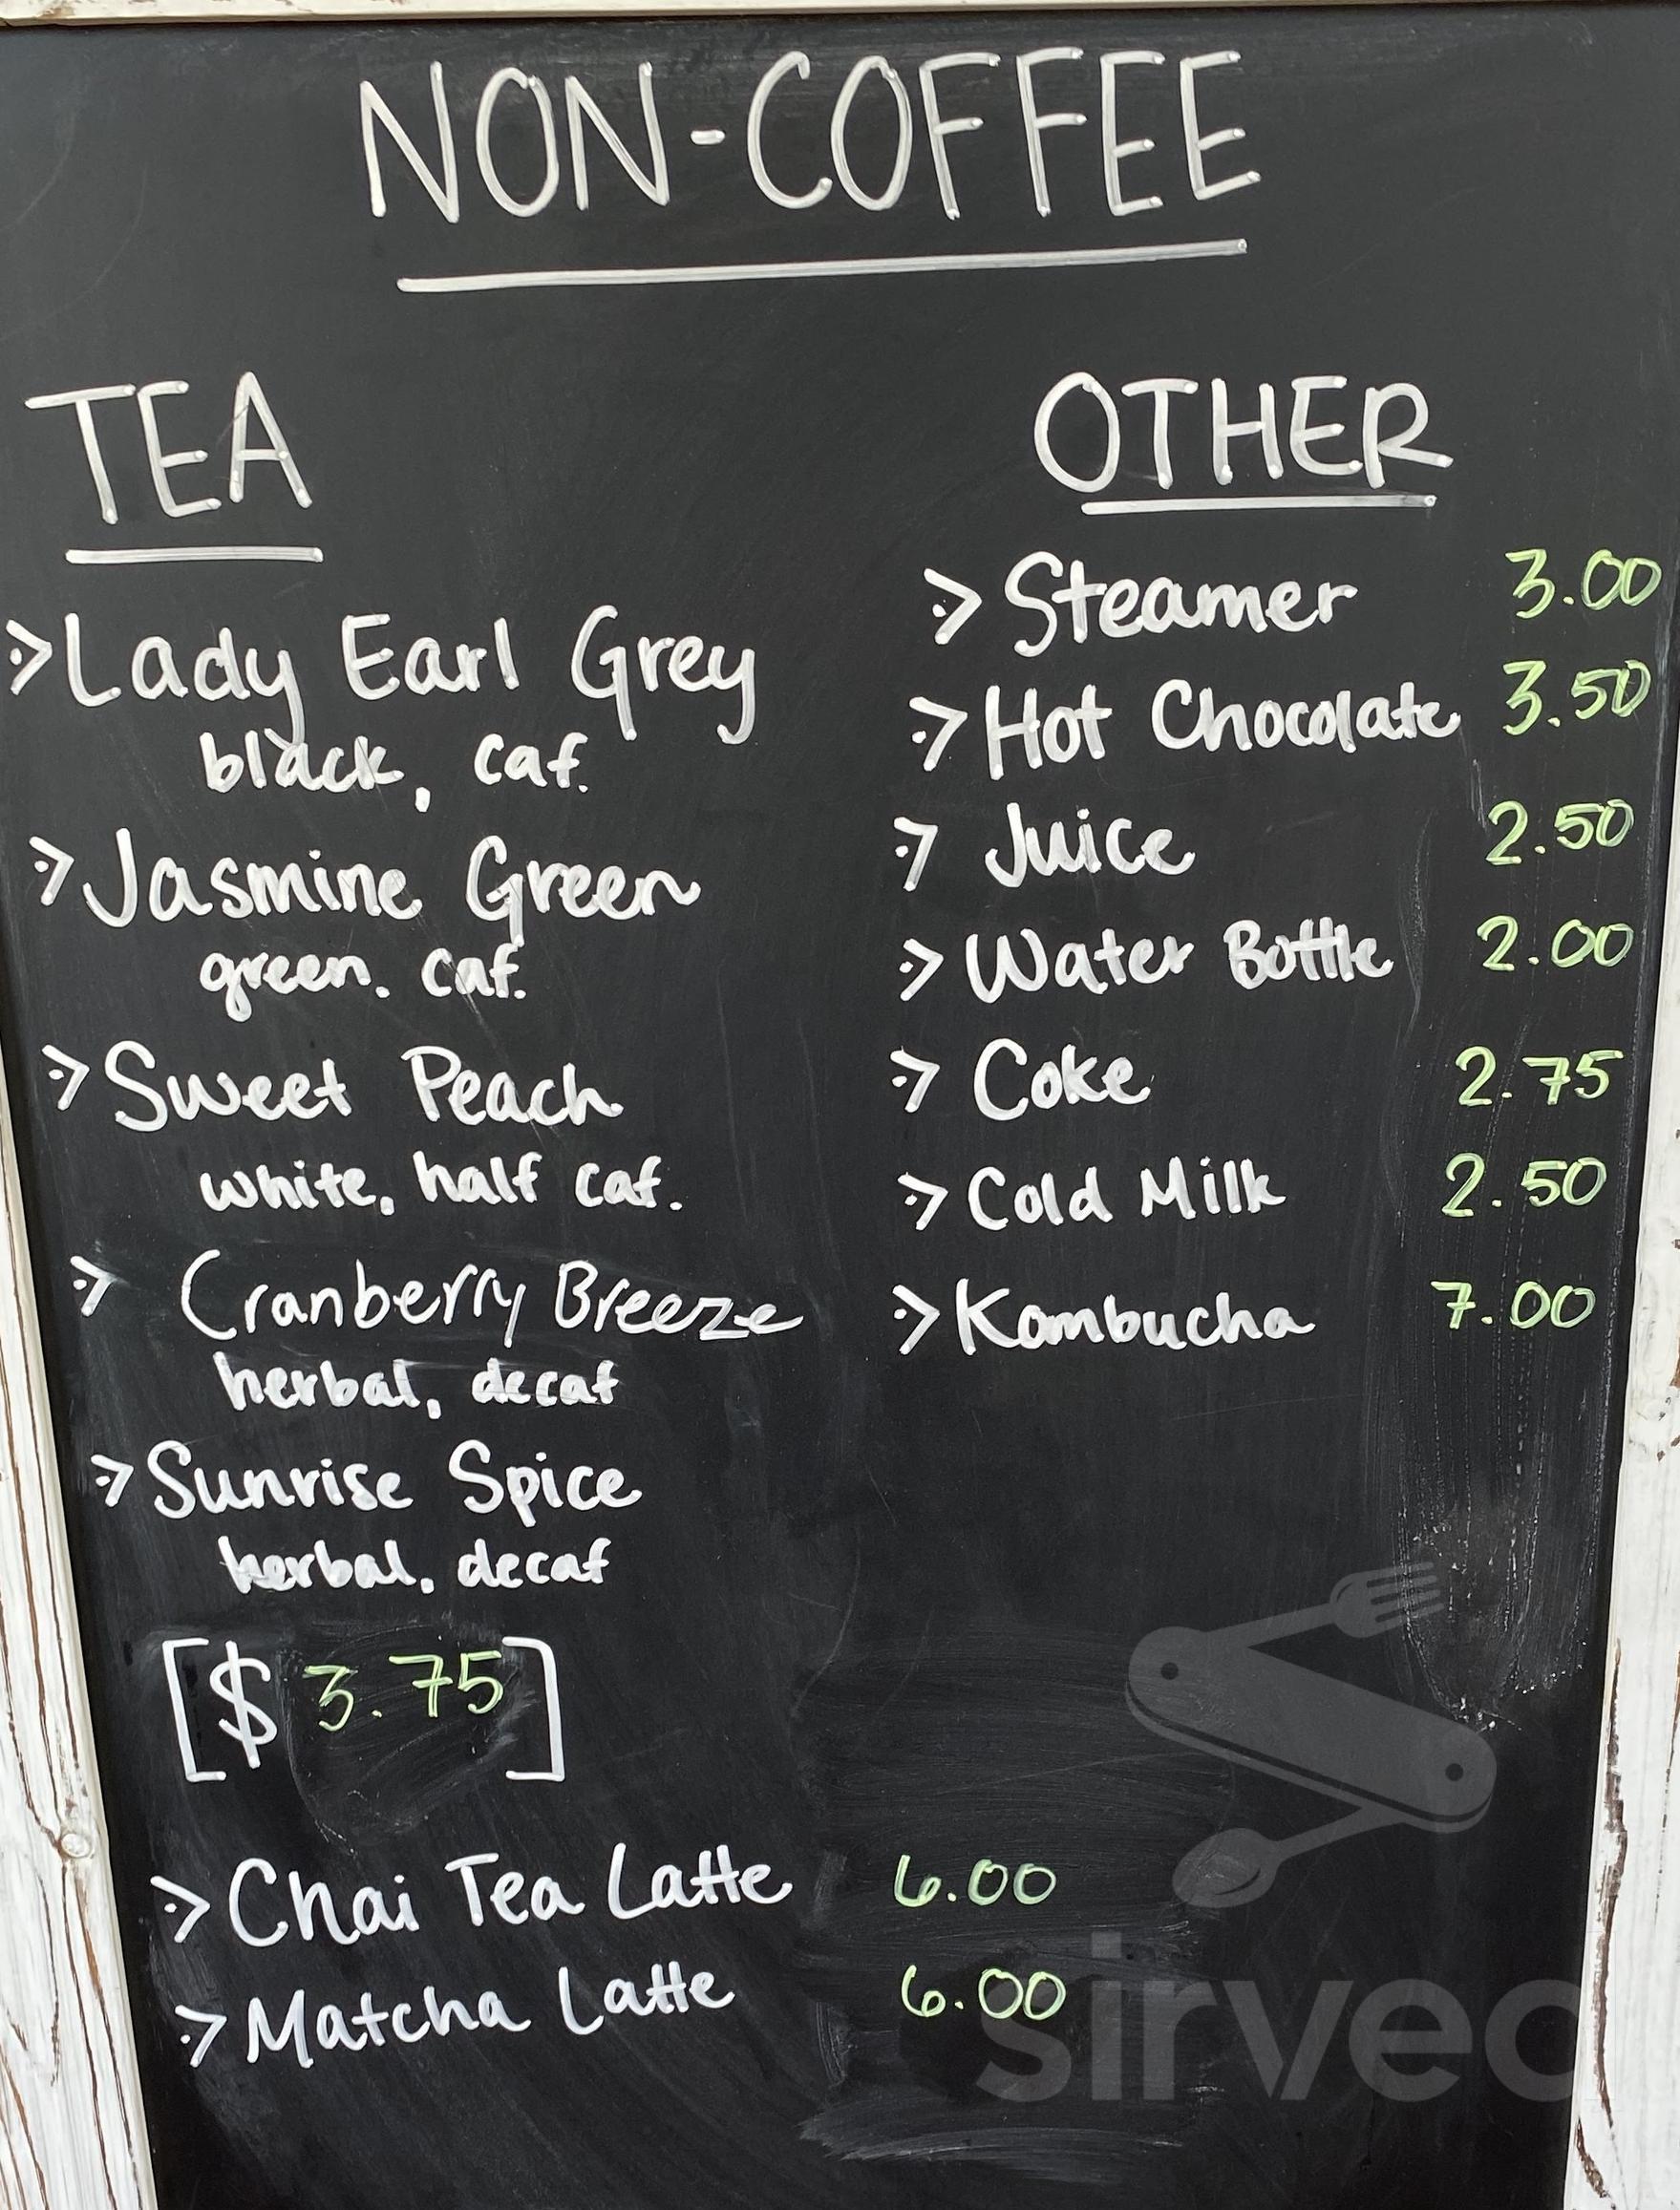 NON-COFFEE
TEA
Lady Earl Grey
black, caf.
Jasmine Green
green. caf.
Sweet Peach
white, half caf.
Cranberry Breeze
herbal, decaf
Sunrise Spice
herbal, decaf
[$ 3.75]
Chai Tea Latte 6.00
Matcha Latte 6.00
OTHER
Steamer 3.00
Hot Chocolate 3.50
Juice 2.50
Water Bottle 2.00
Coke 2.75
Cold Milk 2.50
Kombucha 7.00
sirved